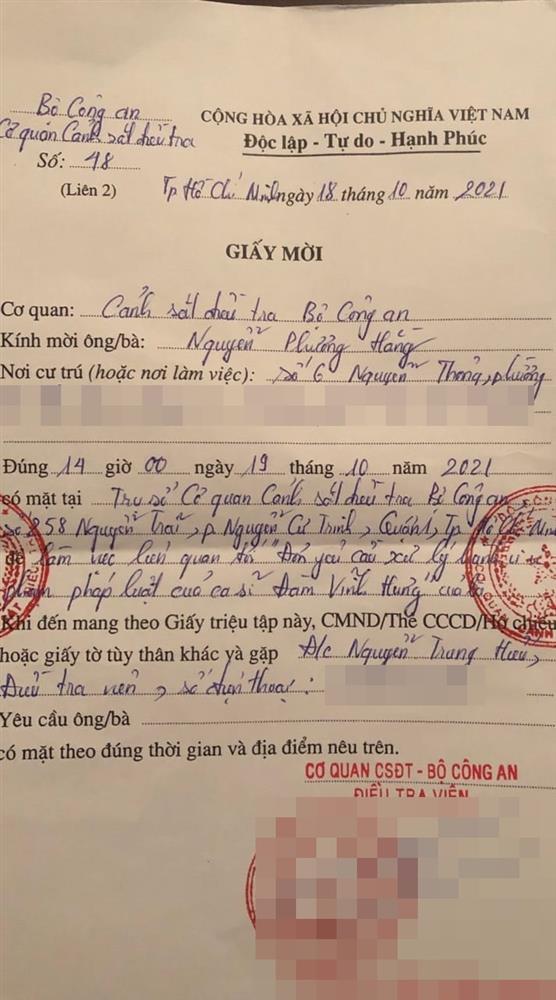 Bộ Công an
Cơ quan Cảnh sát điều tra
CỘNG HÒA XÃ HỘI CHỦ NGHĨA VIỆT NAM
Độc lập - Tự do - Hạnh Phúc
Số: 48
(Liên 2)
Tp Hồ Chí Minh ngày 18 tháng 10 năm 2021
GIẤY MỜI
Cơ quan: Cảnh sát điều tra Bộ Công an
Kính mời ông/bà: Nguyễn Phương Hằng
Nơi cư trú (hoặc nơi làm việc): số 6 Nguyễn Thông, phường
Đúng 14 giờ 00 ngày 19 tháng 10 năm 2021
có mặt tại Trụ sở Cơ quan Cảnh sát điều tra Bộ Công an
số 258 Nguyễn Trãi, p Nguyễn Cư Trinh, Quận 1, Tp Hồ Chí Minh
để làm việc liên quan tới "Đơn yêu cầu xử lý hành vi vi
phạm pháp luật của ca sĩ Đàm Vĩnh Hưng" của bà
Khi đến mang theo Giấy triệu tập này, CMND/Thẻ CCCD/Hộ chiếu
hoặc giấy tờ tùy thân khác và gặp Đ/c Nguyễn Trung Hiếu,
Điều tra viên, số điện thoại:
Yêu cầu ông/bà
có mặt theo đúng thời gian và địa điểm nêu trên.
CƠ QUAN CSĐT - BỘ CÔNG AN
ĐIỀU TRA VIÊN